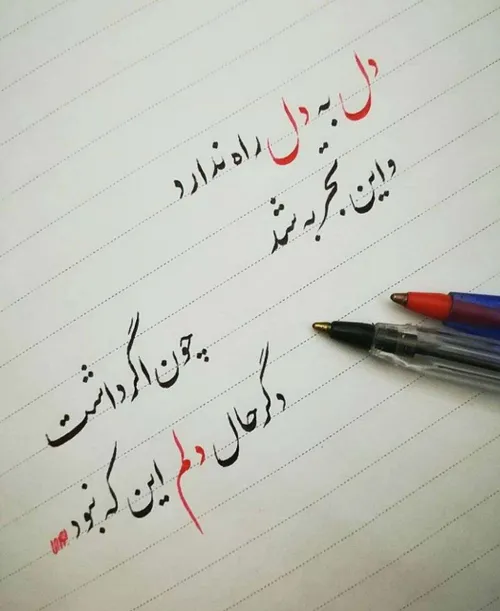 دل به دل راه ندارد
واین تجربه شد
چون اگر داشت
دگر حال دلم این که نبود...